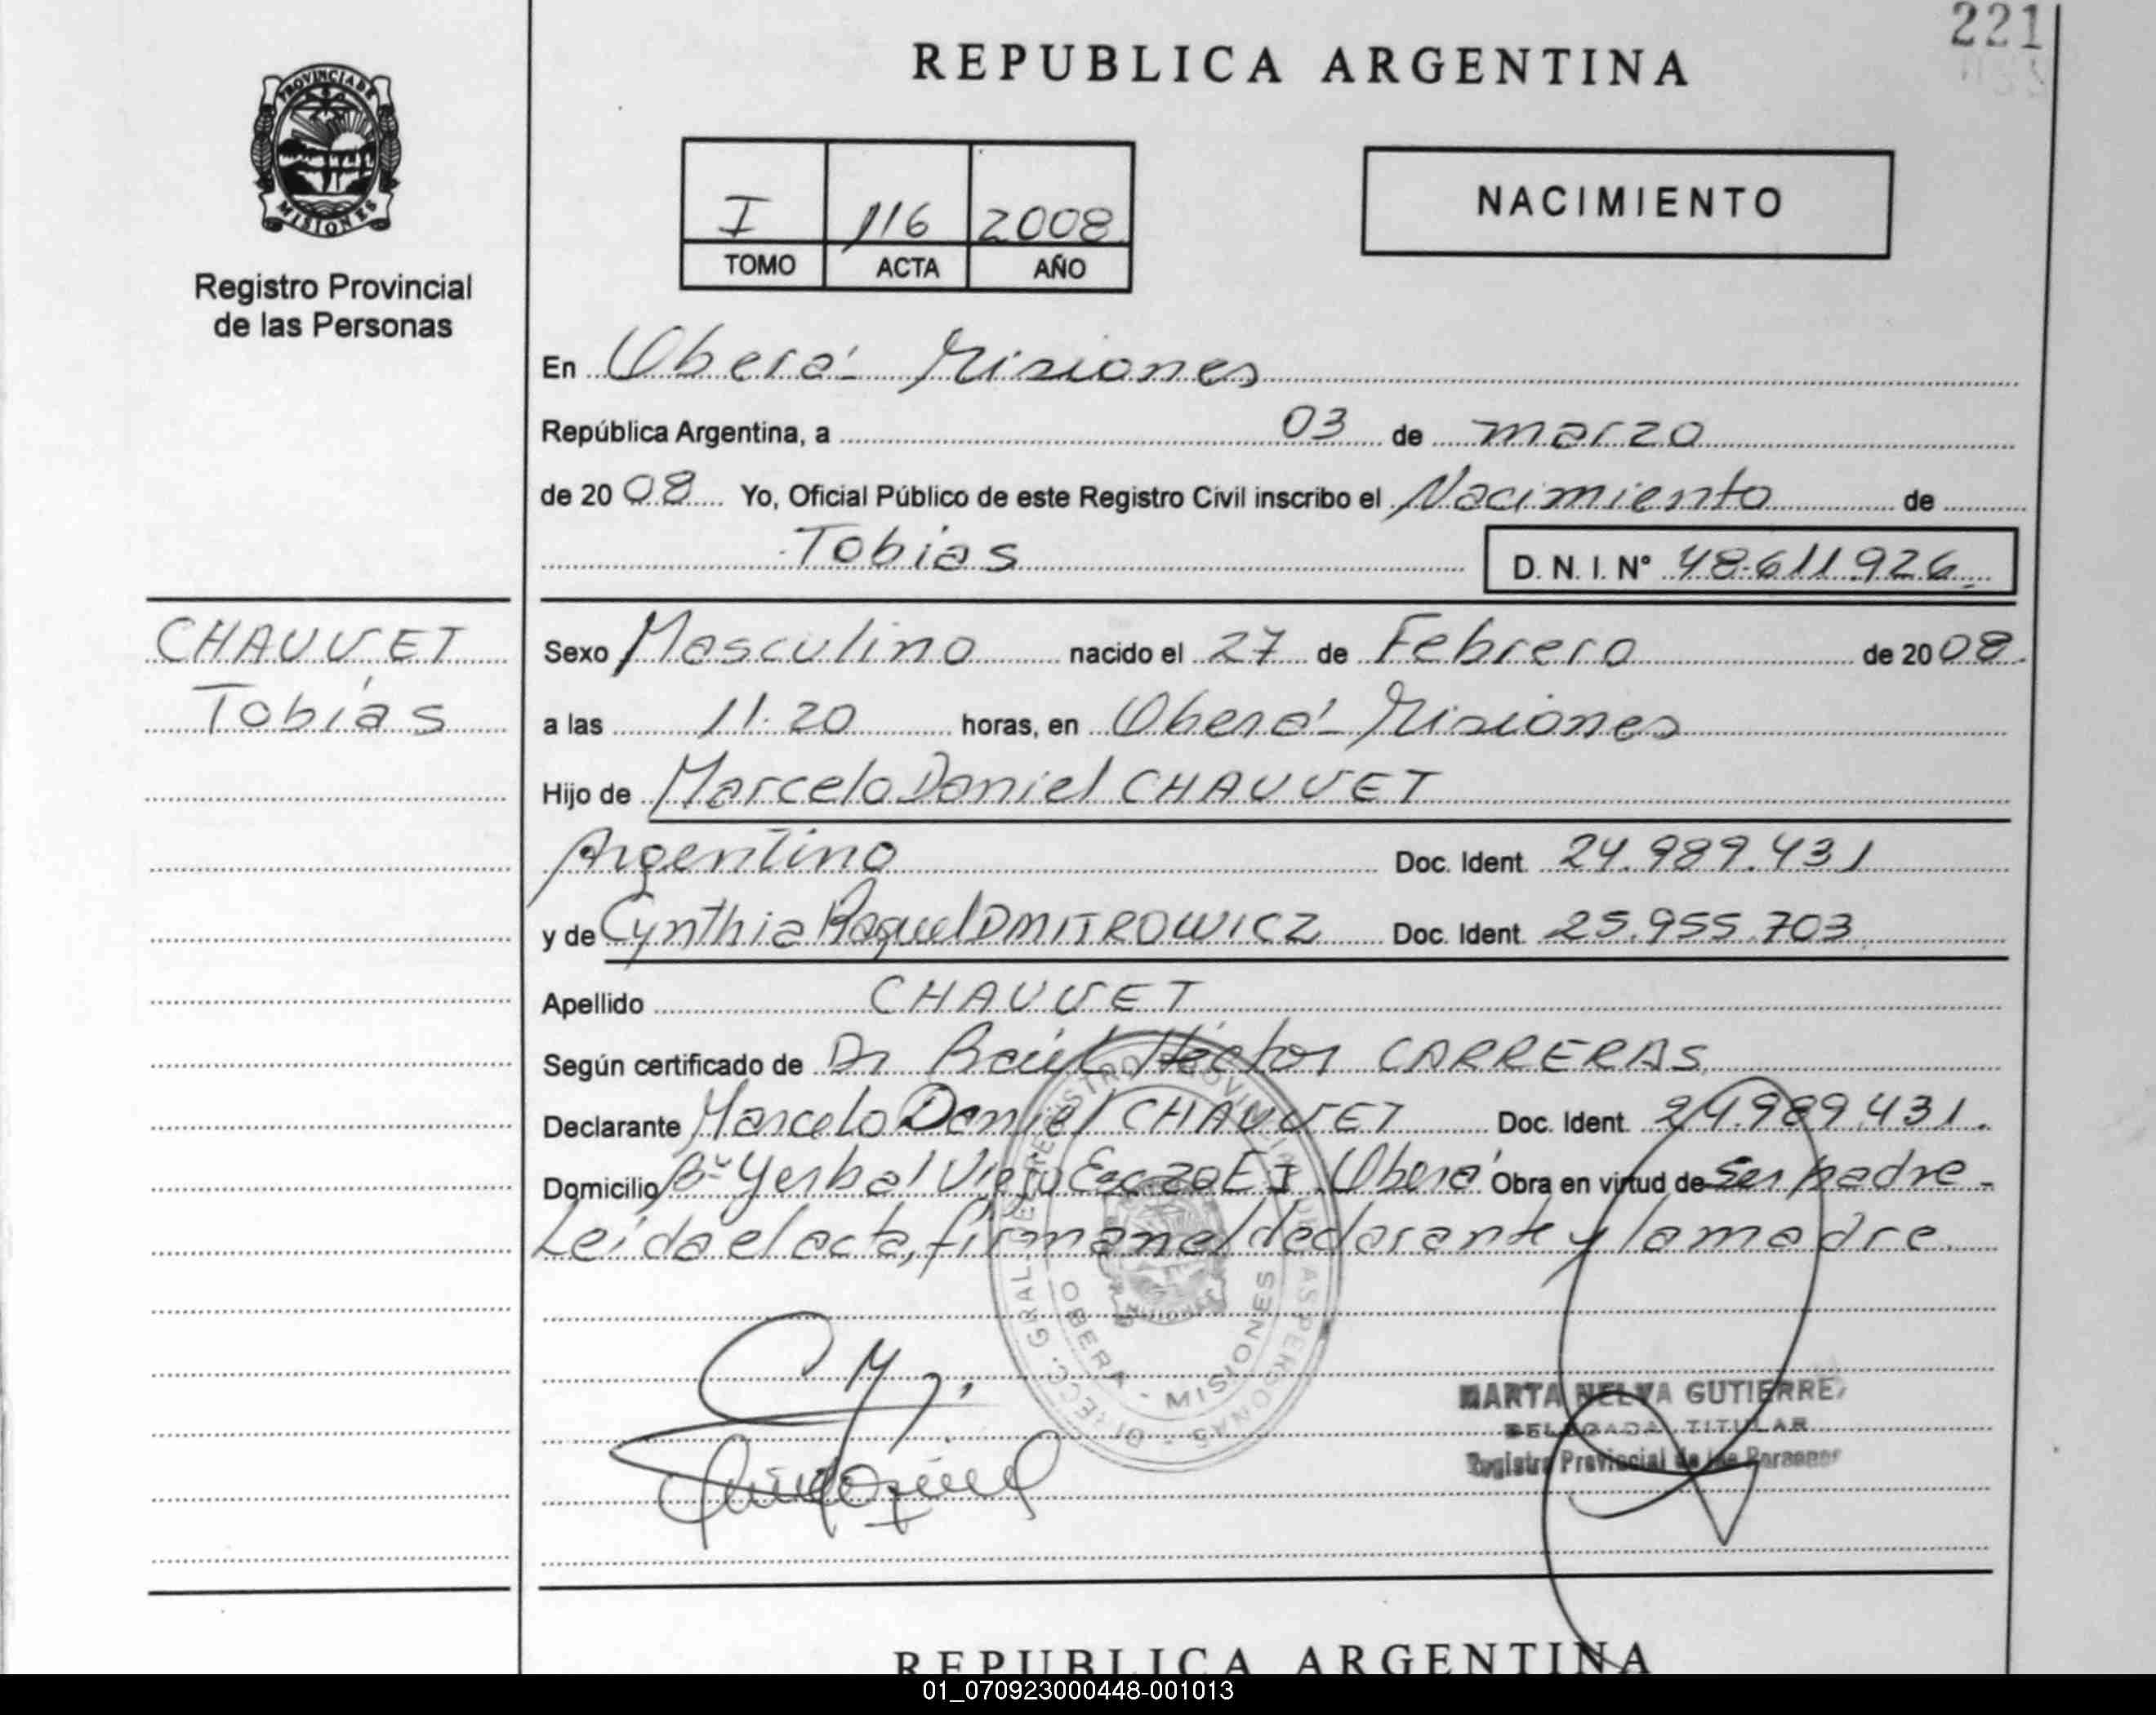 221
REPUBLICA ARGENTINA
PROVINCIA DE
MISIONES
Registro Provincial
de las Personas
I 116 2008
TOMO ACTA AÑO
NACIMIENTO
En Oberá - Misiones
República Argentina, a 03 de marzo
de 20 08 Yo, Oficial Público de este Registro Civil inscribo el Nacimiento de
Tobias D. N. I. Nº 48.611.926
CHAUVET
Tobías
Sexo Masculino nacido el 27 de Febrero de 20 08.
a las 11.20 horas, en Oberá - Misiones
Hijo de Marcelo Daniel CHAUVET
Argentino Doc. Ident. 24.989.431
y de Cynthia Raquel DMITROWICZ Doc. Ident. 25.955.703
Apellido CHAUVET
Según certificado de Dr Raúl Héctor CARRERAS
Declarante Marcelo Daniel CHAUVET Doc. Ident. 24.989.431.
Domicilio Bº Yerbal Viejo Oberá Obra en virtud de Ser padre -
Leída el acta, firman el declarante y la madre
OBERA - MISIONES
MARTA NELVA GUTIERREZ
DELEGADA TITULAR
Registro Provincial de las Personas
REPUBLICA ARGENTINA
01_070923000448-001013